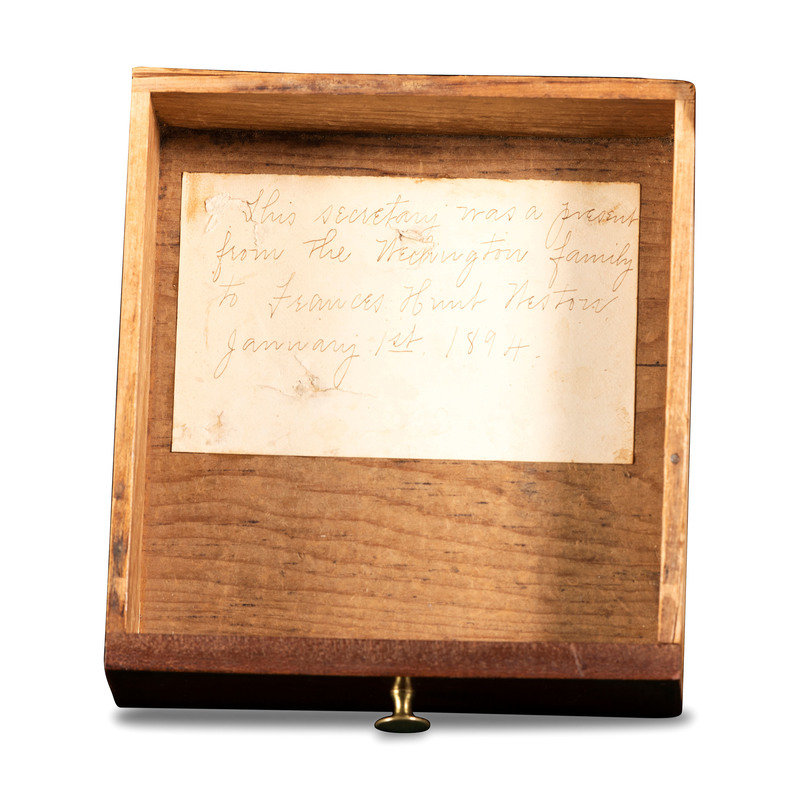 This secretary was a present
from the Washington family
to Frances Hunt Weston.
January 1st. 1894.